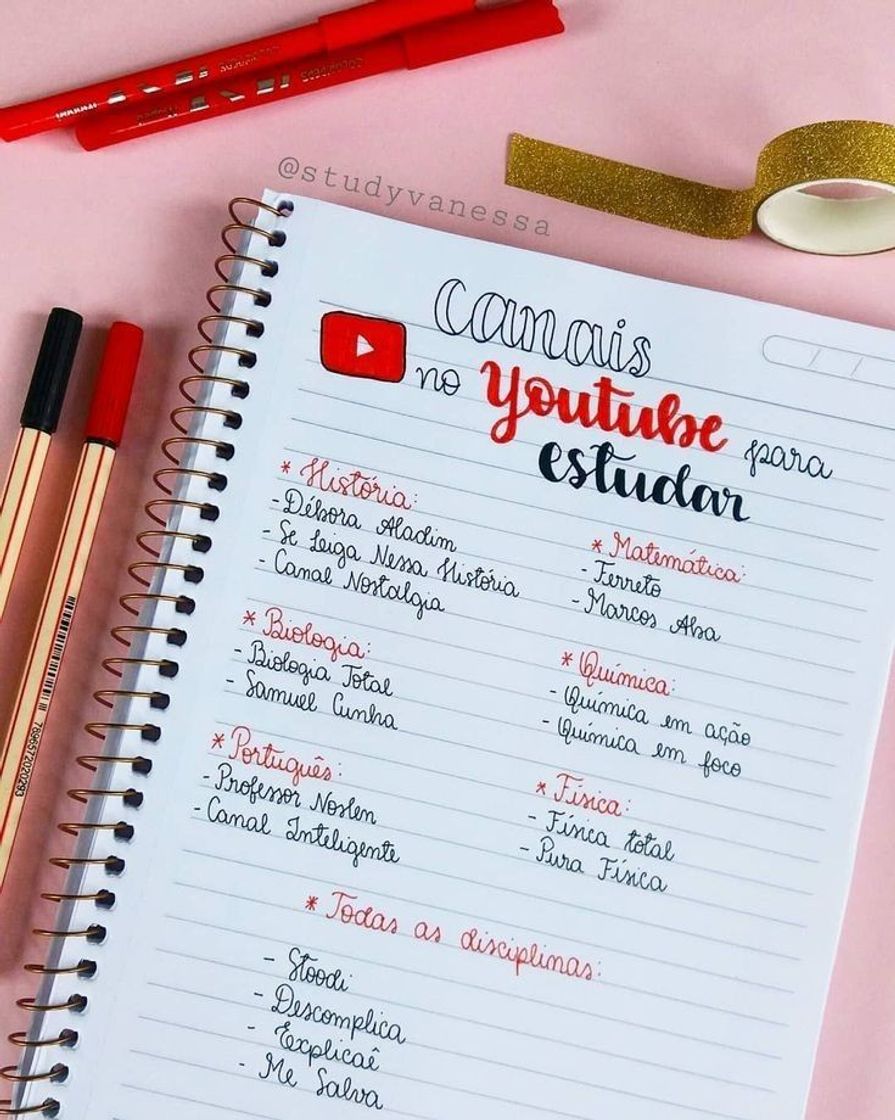 @studyvanessa
Canais
no Youtube para
estudar
* História:
- Débora Aladim
- Se Leiga Nessa História
- Canal Nostalgia
* Matemática:
- Ferreto
- Marcos Aba
* Biologia:
- Biologia Total
- Samuel Cunha
* Química:
- Química em ação
- Química em foco
* Português:
- Professor Noslen
- Canal Inteligente
* Física:
- Física total
- Pura Física
* Todas as disciplinas:
- Stoodi
- Descomplica
- Explicaê
- Me Salva
7896572020293